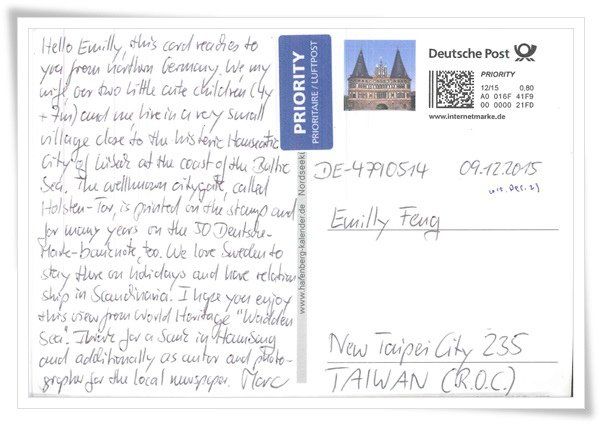 Hello Emilly, this card reaches to
you from northern Germany. We my
wife, our two little cute children (4y
+ 7m) and me, live in a very small
village close to the historic Hanseatic
City of Lübeck at the coast of the Baltic
Sea. The wellknown citygate, called
Holsten-Tor, is printed on the stamp and
for many years on the 50 Deutsche-
Mark-banknote, too. We love Sweden to
stay there on holidays and have relation
ship in Scandinavia. I hope you enjoy
this view from World Heritage "Wadden
Sea". I work for a in
and additionally as autor and photo-
grapher for the local newspaper. Marc
PRIORITY
PRIORITAIRE / LUFTPOST
www.harenberg-kalender.de Nordseeküste
Deutsche Post
PRIORITY
12/15 0,80
A0 016F 41F9
00 0000 21FD
www.internetmarke.de
DE-4790514 09.12.2015
Dec. 21
Emilly Feng
New Taipei City 235
TAIWAN (R.O.C.)